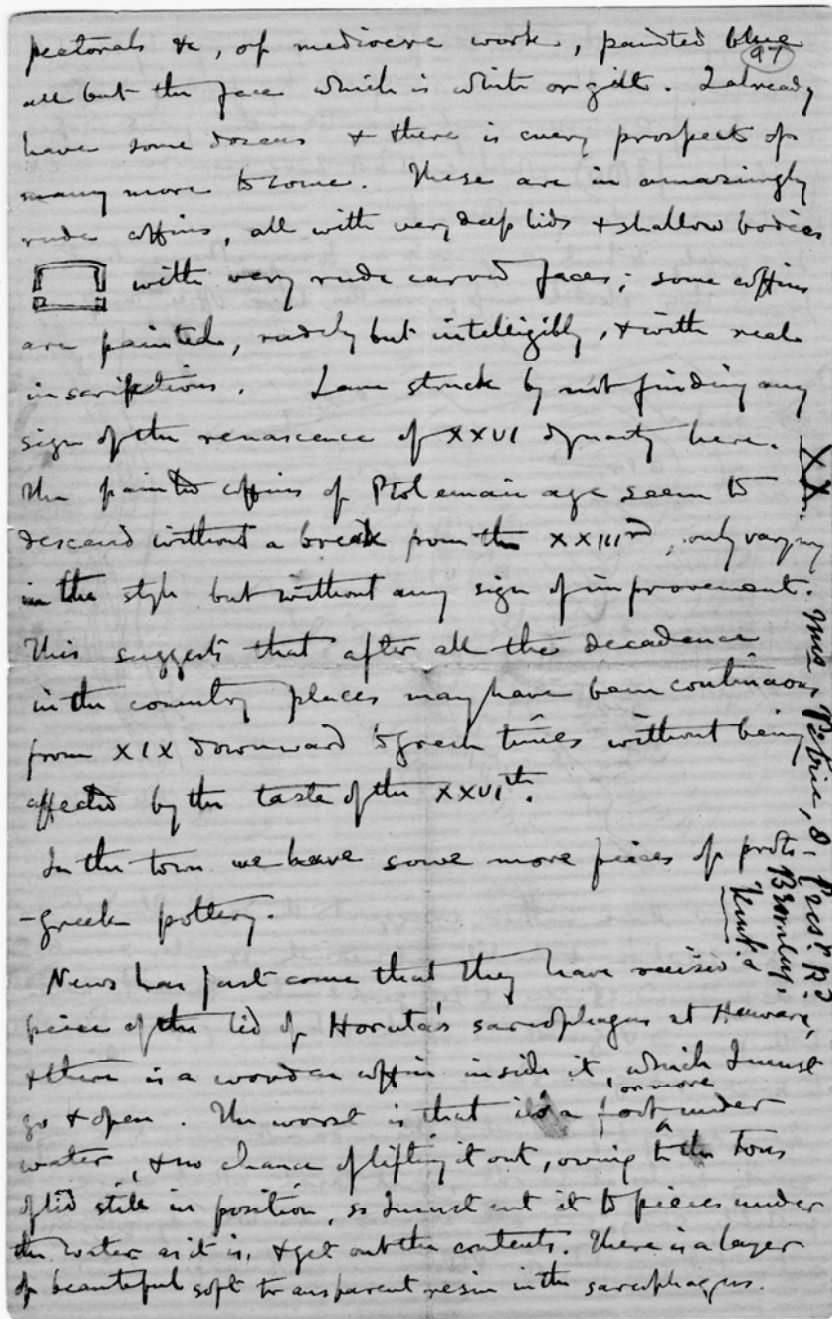 97
pectorals &c, of mediocre work, painted blue
all but the face which is white or gilt. I already
have some dozens & there is every prospect of
many more to come. These are in amazingly
rude coffins, all with very deep lids & shallow bodies
with very rude carved faces; some coffins
are painted, rudely but intelligibly, & with real
inscriptions. I am struck by not finding any
sign of the renascence of XXVI dynasty here.
The painted coffins of Ptolemaic age seem to
descend without a break from the XXIIIrd, only varying
in the style but without any sign of improvement.
This suggests that after all the decadence
in the country places may have been continuous
from XIX downward to Greek times without being
affected by the taste of the XXVIth.
In the town we have some more pieces of proto
-greek pottery.
News has just come that they have raised
piece of the lid of Horuta's sarcophagus at Hawara,
& there is a wooden coffin inside it, which I must
go & open. The worst is that it is a foot or more under
water, & no chance of lifting it out, owing to the tons
of lid still in position, so I must cut it to pieces under
the water as it is, & get out the contents. There is a layer
of beautiful soft transparent resin in the sarcophagus.
XX
Petrie, 8,
Bromley.
Kent.